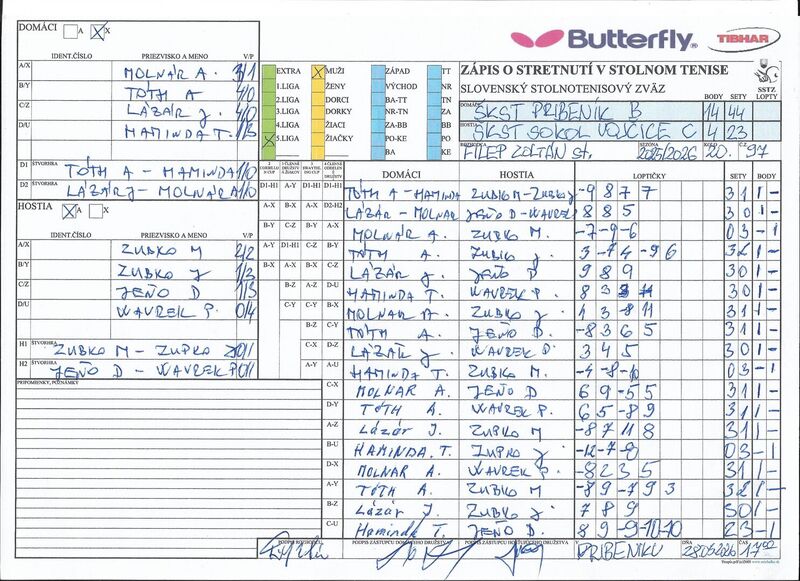 DOMÁCI A X
IDENT.ČÍSLO PRIEZVISKO A MENO V/P
A/X MOLNÁR A. 3/1
B/Y TÓTH A 4/0
C/Z LÁZÁR J. 4/0
D/U HAMINDA T. 1/3
D1 ŠTVORHRA TÓTH A - HAMINDA 1/0
D2 ŠTVORHRA LÁZÁR J - MOLNÁR A 1/0
HOSTIA A X
IDENT.ČÍSLO PRIEZVISKO A MENO V/P
A/X ZUBKO M 2/2
B/Y ZUBKO J 1/3
C/Z JEŇO D 1/3
D/U WAVREK P. 0/4
H1 ŠTVORHRA ZUBKO M - ZUPKO J 0/1
H2 ŠTVORHRA JEŇO D - WAVREK P 0/1
PRIPOMIENKY, POZNÁMKY
EXTRA X MUŽI ZÁPAD TT
1.LIGA ŽENY VÝCHOD NR
2.LIGA DORCI BA-TT TN
3.LIGA DORKY NR-TN ZA
4.LIGA ŽIACI ZA-BB BB
X 5.LIGA ŽIAČKY PO-KE PO
BA KE
Butterfly
TIBHAR
ZÁPIS O STRETNUTÍ V STOLNOM TENISE
SLOVENSKÝ STOLNOTENISOVÝ ZVÄZ
SSTZ
BODY SETY LOPTY
DOMÁCI ŠKST PRIBENÍK B 14 44
HOSTIA ŠKST SOKOL VOJČICE C 4 23
FILEP ZOLTÁN st. SEZÓNA 2025/2026 KOLO 20. ČZ 97
DOMÁCI HOSTIA LOPTIČKY SETY BODY
D1-H1 TÓTH A - HAMINDA ZUBKO M - ZUBKO J -9 8 7 7 3 1 1 -
LÁZÁR - MOLNÁR JEŇO D - WAVREK 8 8 5 3 0 1 -
MOLNÁR A. ZUBKO M. -7 -9 -6 0 3 - 1
TÓTH A. ZUBKO J. 3 -7 4 -9 6 3 2 1 -
LÁZÁR J. JEŇO D 9 8 9 3 0 1 -
HAMINDA T. WAVREK P. 8 3 11 3 0 1 -
MOLNÁR A ZUBKO J 4 3 -8 11 3 1 1 -
TÓTH A. JEŇO D. -8 3 6 5 3 1 1 -
LÁZÁR J WAVREK P. 3 4 5 3 0 1 -
HAMINDA T. ZUBKO M. -4 -8 -10 0 3 - 1
C-X MOLNÁR A JEŇO D 6 9 -5 5 3 1 1 -
D-Y TÓTH A. WAVREK P. 6 5 -8 9 3 1 1 -
A-Z Lázár J. ZUBKO M -8 7 11 8 3 1 1 -
B-U HAMINDA. T. ZUPKO J -12 -7 -8 0 3 - 1
D-X MOLNAR A. WAVREK P. -8 2 3 5 3 1 1 -
A-Y TÓTH A. ZUBKO M -8 9 -7 9 3 3 2 1 -
B-Z Lázár J. ZUBKO J 7 8 9 3 0 1 -
C-U Haminda T. JEŇO D. 8 9 -9 -10 -10 2 3 - 1
PODPIS ZÁSTUPCU DOMÁCEHO DRUŽSTVA PODPIS ZÁSTUPCU HOSŤUJÚCEHO DRUŽSTVA V PRIBENÍKU